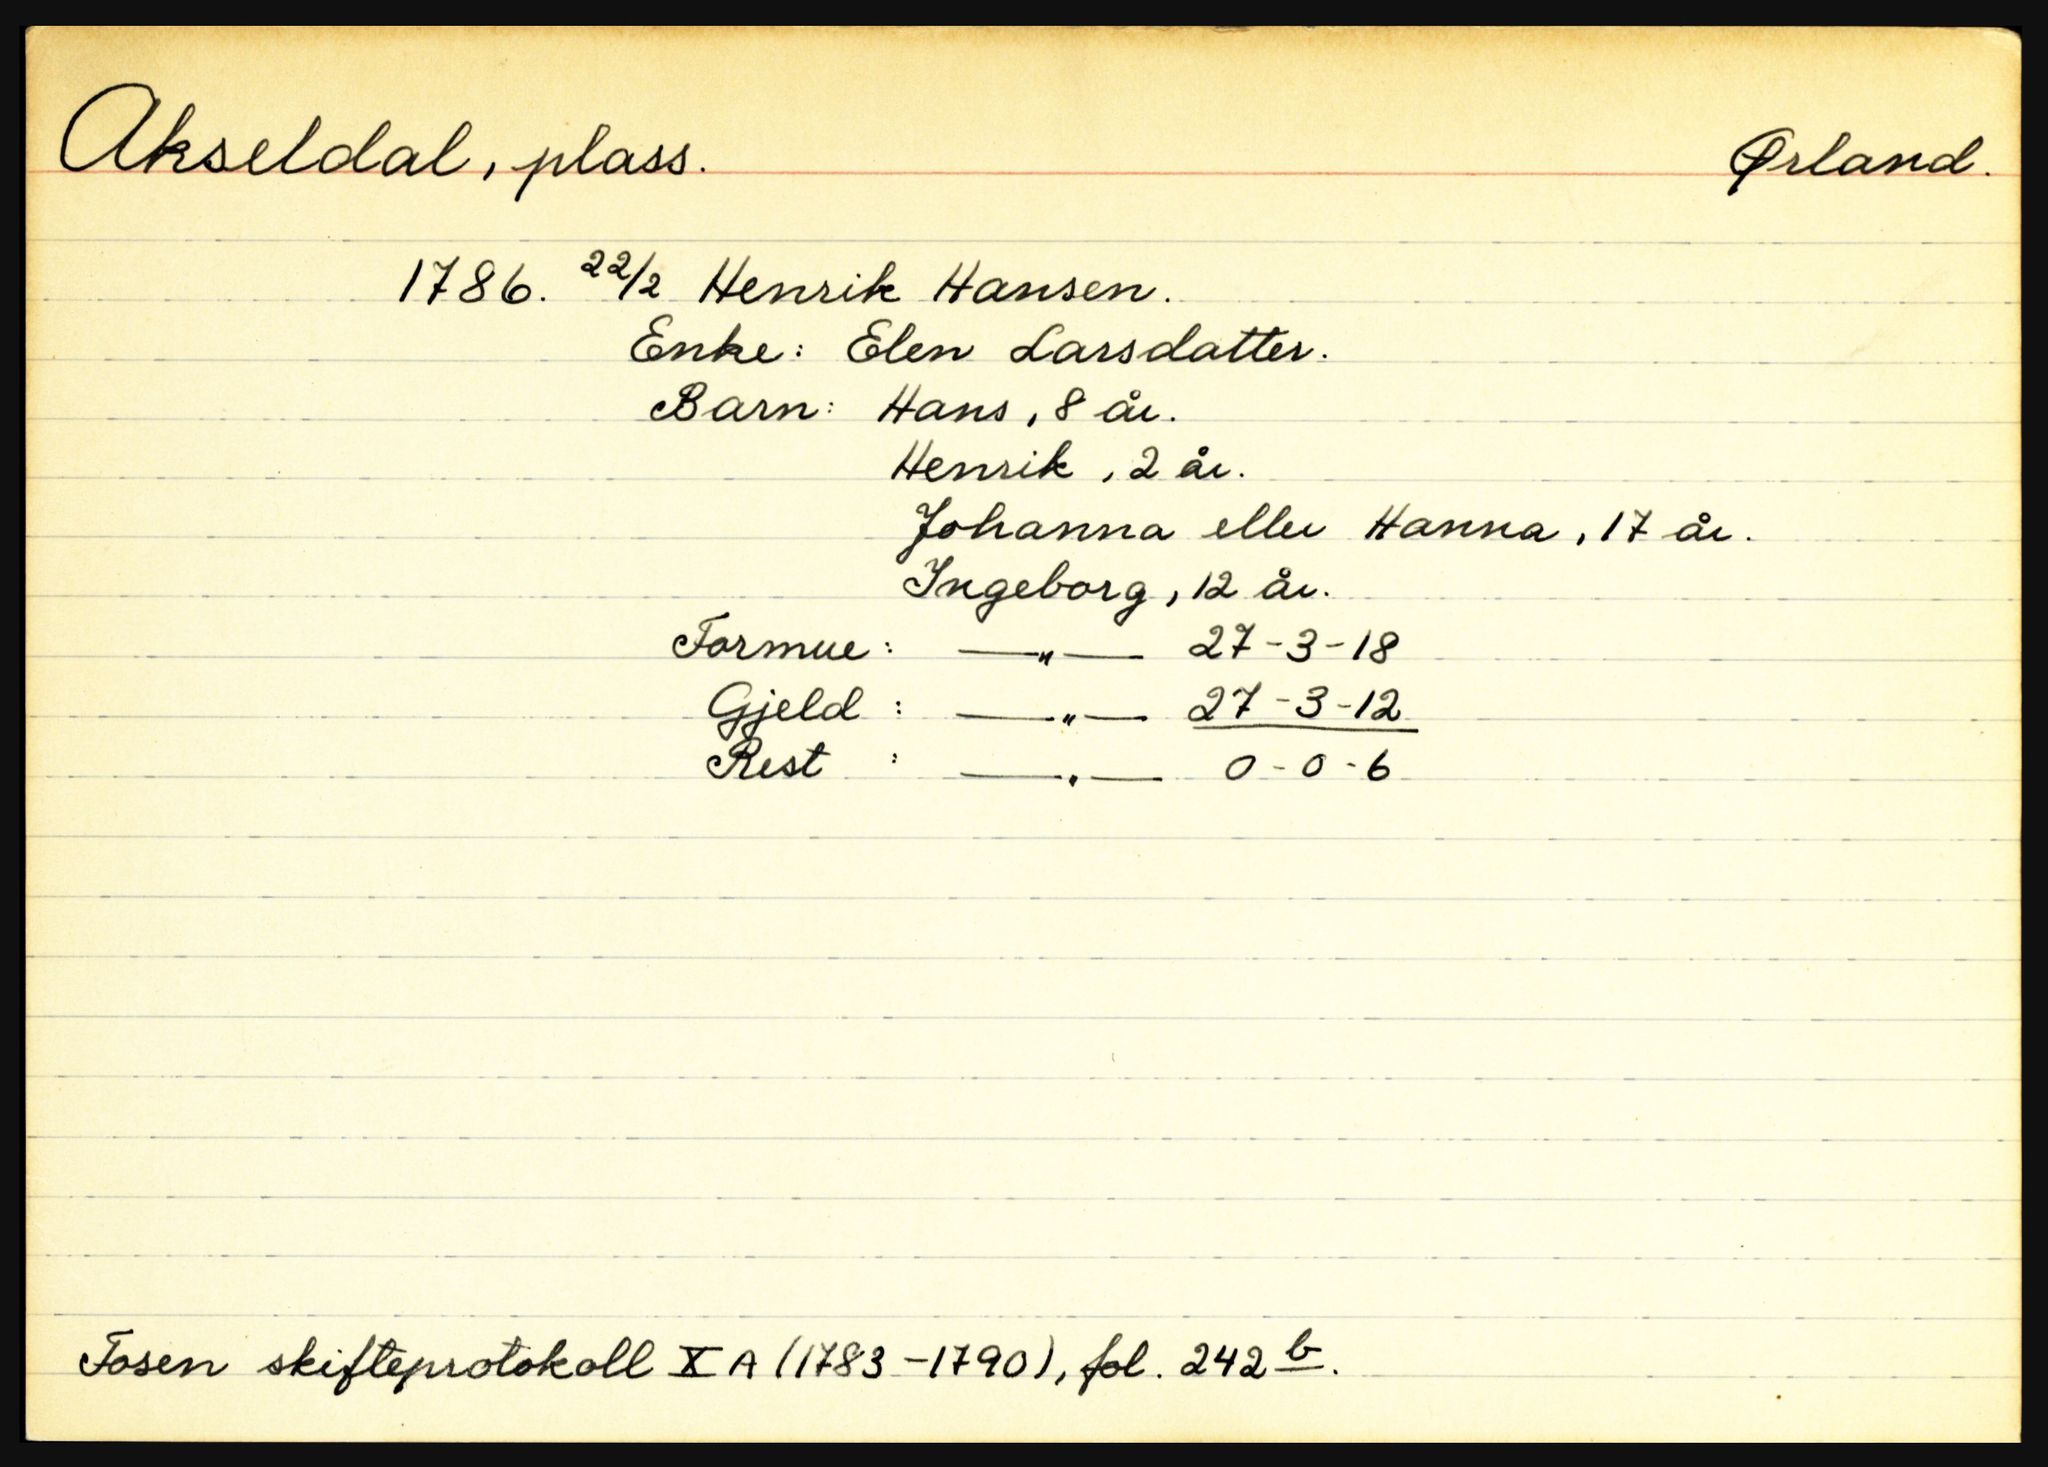 Akseldal, plass. Ørland.
1786. 22/2 Henrik Hansen.
Enke: Elen Larsdatter.
Barn: Hans, 8 år.
Henrik, 2 år.
Johanna eller Hanna, 17 år.
Ingeborg, 12 år.
Formue: —"— 27-3-18
Gjeld: —"— 27-3-12
Rest: —"— 0-0-6
Fosen skifteprotokoll X A (1783-1790), fol. 242 b.